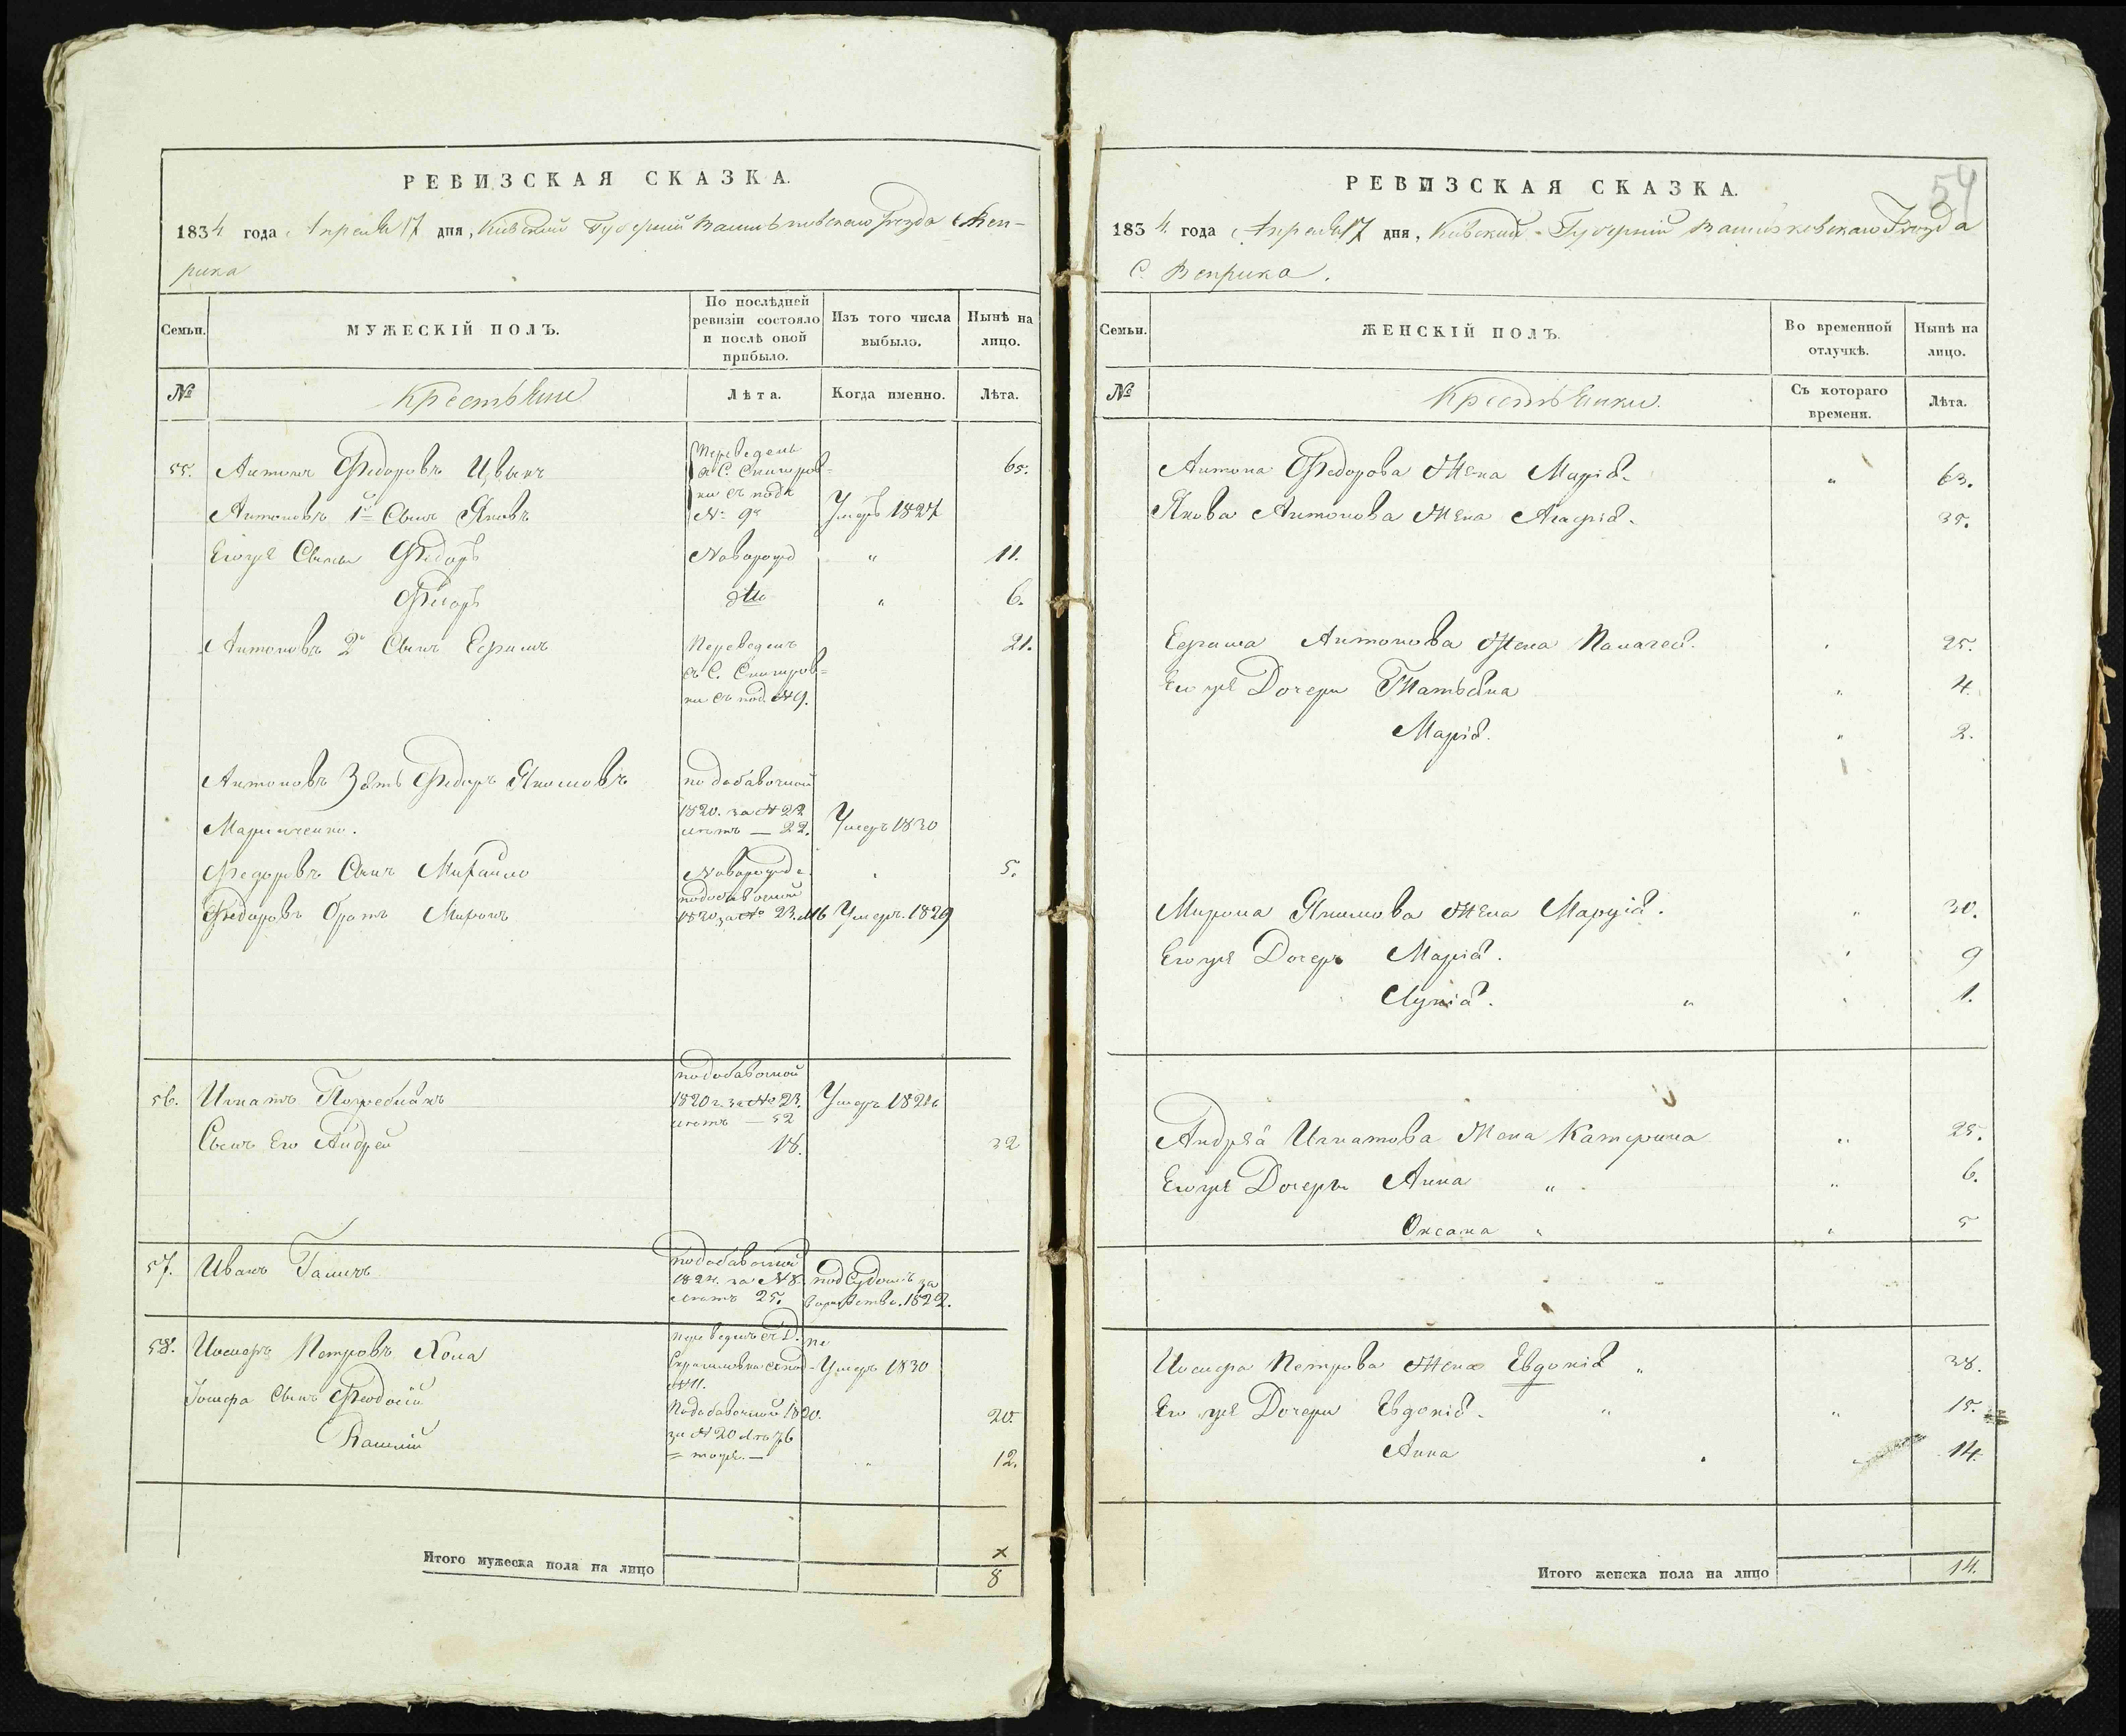 РЕВИЗСКАЯ СКАЗКА.
1834 года Апреля 17 дня, Киевской Губернии Васильковского Уезда С. Веп-
рика
Семьи.
МУЖЕСКІЙ ПОЛЪ.
По послѣдней ревизіи состояло и послѣ оной прибыло.
Изъ того числа выбыло.
Нынѣ на лицо.
№
Крестьяне
Лѣта.
Когда именно.
Лѣта.
55. Антонъ Федоровъ Цвыкъ Переведенъ 65.
Антоновъ 1й Сынъ Яковъ № 9й Умеръ 1827
Егоже Сыны Федоръ Новорожд " 11.
Федоръ " 6.
Антоновъ 2й Сынъ Ефимъ Переведенъ 21.
съ С.
Антоновъ Зять Федоръ Якимовъ по добавочной
1820. за № 22
Маринченко. летъ — 22. Умеръ 1830
Федоровъ Сынъ Михайло Новорожд. 5.
подобавочной
Федоровъ братъ Миронъ 1820 за № 23. 16 Умеръ 1829
подобавочной
56. Игнатъ Погребнякъ 1820 г. за № 23. Умеръ
летъ — 52
Сынъ Его Андрей 18. 32
подобавочной
57. Иванъ за № 8. подСудомъ за
летъ 25. 1822.
58. Иосифъ Петровъ Хома
Умеръ 1830
№ 11.
Іосифа Сынъ Феодосій Подобавочной 1820. 20.
за № 20 летъ 6
Василій — тоже. — " 12.
Итого мужеска пола на лицо 8
54
РЕВИЗСКАЯ СКАЗКА.
1834. года Апреля 17 дня, Киевской Губерніи Васильковскаго Уезда
С. Веприка.
Семьи.
ЖЕНСКІЙ ПОЛЪ.
Во временной отлучкѣ.
Нынѣ на лицо.
№
Крестьянки.
Съ котораго времени.
Лѣта.
Антона Федорова Жена Марія. " 63.
Якова Антонова Жена Агафія. 35.
Ефима Антонова Жена Палагея. 25.
Егоже Дочери Татьяна " 4.
Марія. " 2.
Мирона Якимова Жена Марфія. " 30.
Егоже Дочеръ Марія. " 9
Лукія. " 1.
Андрея Игнатова Жена Катерина " 25.
Егоже Дочеры Анна " " 6.
Оксана " " 5
Иосифа Петрова Жена Евдокія " 38.
Егоже Дочери Евдокія. " " 15.
Анна 14.
Итого женска пола на лицо 14.